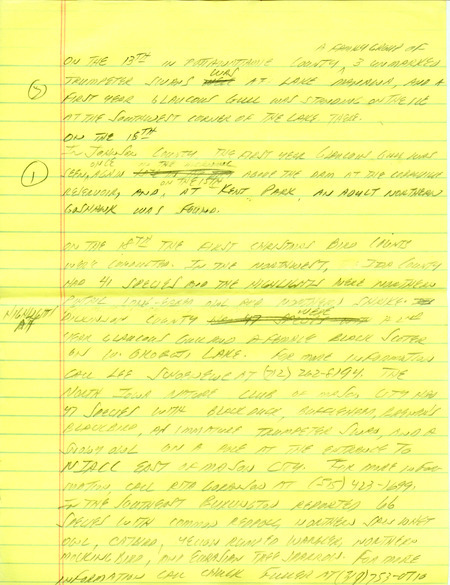 A FAMILY GROUP OF
ON THE 13TH IN POTTAWATTAMIE COUNTY, 3 UNMARKED
② TRUMPETER SWANS WAS AT LAKE MANAWA, AND A
FIRST YEAR GLAUCOUS GULL WAS STANDING ON THE ICE
AT THE SOUTHWEST CORNER OF THE LAKE THERE.
ON THE 15TH
IN JOHNSON COUNTY THE FIRST YEAR GLAUCOUS GULL WAS
ONCE
① SEEN AGAIN ABOVE THE DAM AT THE CORALVILLE
ON THE 15TH
RESERVOIR, AND, AT KENT PARK, AN ADULT NORTHERN
GOSHAWK WAS FOUND.
ON THE 18TH THE FIRST CHRISTMAS BIRD COUNTS
WERE CONDUCTED. IN THE NORTHWEST, IDA COUNTY
HAD 41 SPECIES AND THE HIGHLIGHTS WERE NORTHERN
LONG-EARED OWL AND NORTHERN SHRIKE.
HIGHLIGHTS
DICKINSON COUNTY WERE A 2ND
YEAR GLAUCOUS GULL AND A FEMALE BLACK SCOTER
ON LAKE. FOR MORE INFORMATION
CALL LEE SCHOENEWE AT (712) 262-8194. THE
NORTH IOWA NATURE CLUB OF MASON CITY HAD
47 SPECIES WITH BLACK DUCK, BUFFLEHEAD, BREWER'S
BLACKBIRD, AN IMMATURE TRUMPETER SWAN, AND A
SNOWY OWL ON A POLE AT THE ENTRANCE TO
NIACC EAST OF MASON CITY. FOR MORE INFOR-
MATION, CALL RITA GORANSON AT (515) 423-1699.
IN THE SOUTHEAST BURLINGTON REPORTED 66
SPECIES WITH COMMON REDPOLL, NORTHERN SAW WHET
OWL, CATBIRD, YELLOW RUMPED WARBLER, NORTHERN
MOCKINGBIRD, AND EURASIAN TREE SPARROWS. FOR MORE
INFORMATION CALL CHUCK FULLER AT (319) 753-0710